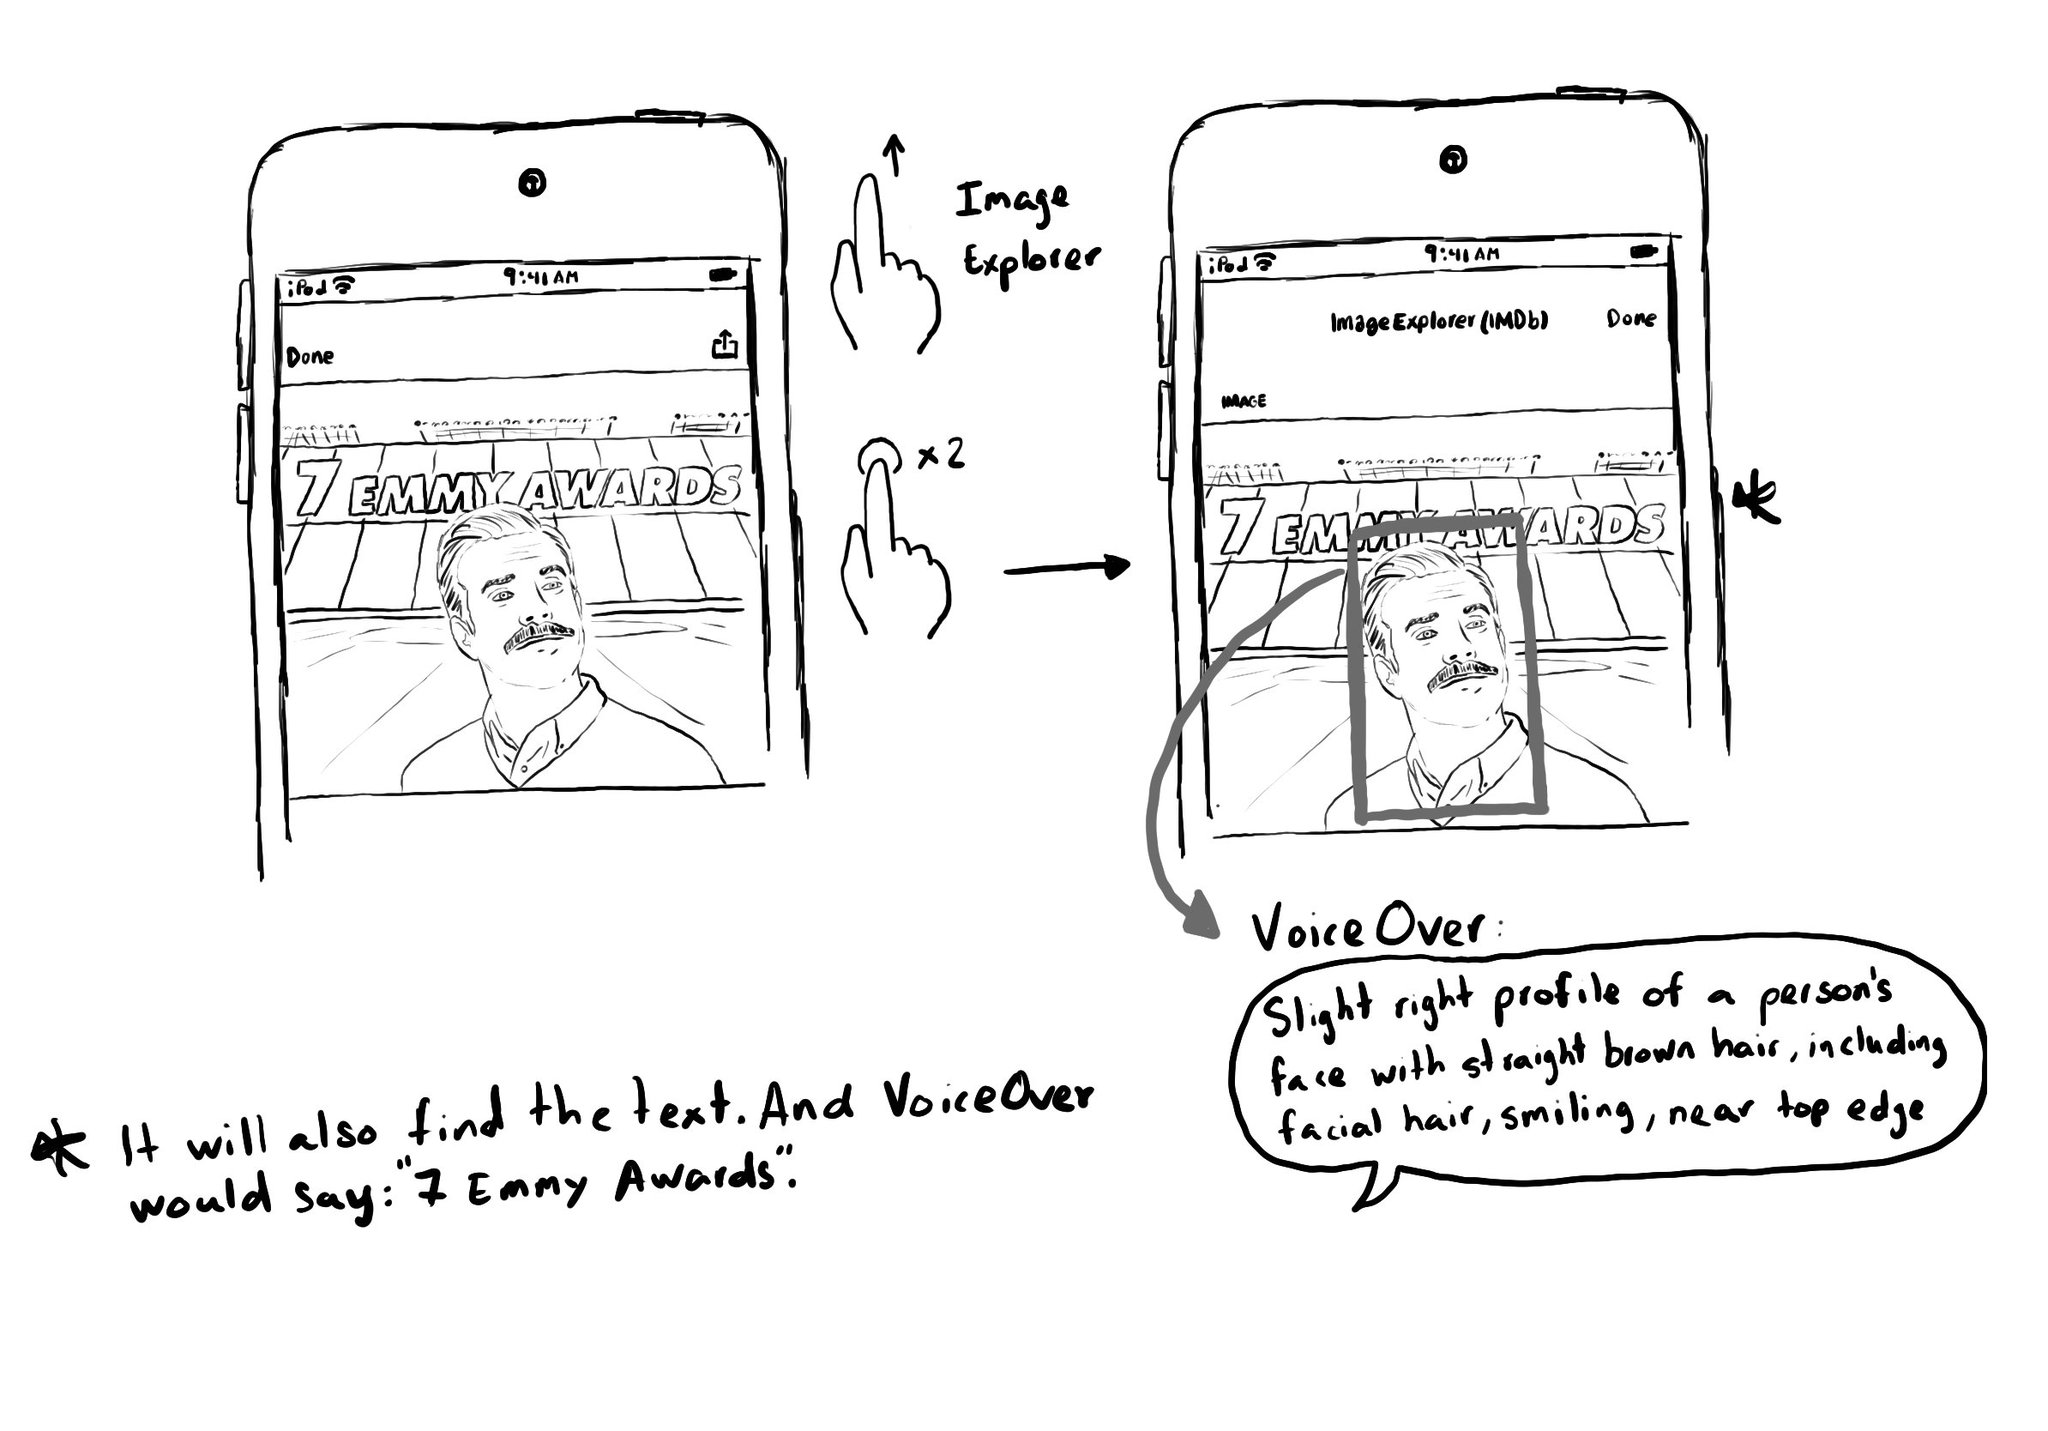 iPod
9:41 AM
Done
7 EMMY AWARDS
Image
Explorer
x2
iPod
9:41 AM
Image Explorer (IMDb)
Done
IMAGE
7 EMMY AWARDS
*
VoiceOver:
Slight right profile of a person's
face with straight brown hair, including
facial hair, smiling, near top edge
* It will also find the text. And VoiceOver
would say: "7 Emmy Awards".